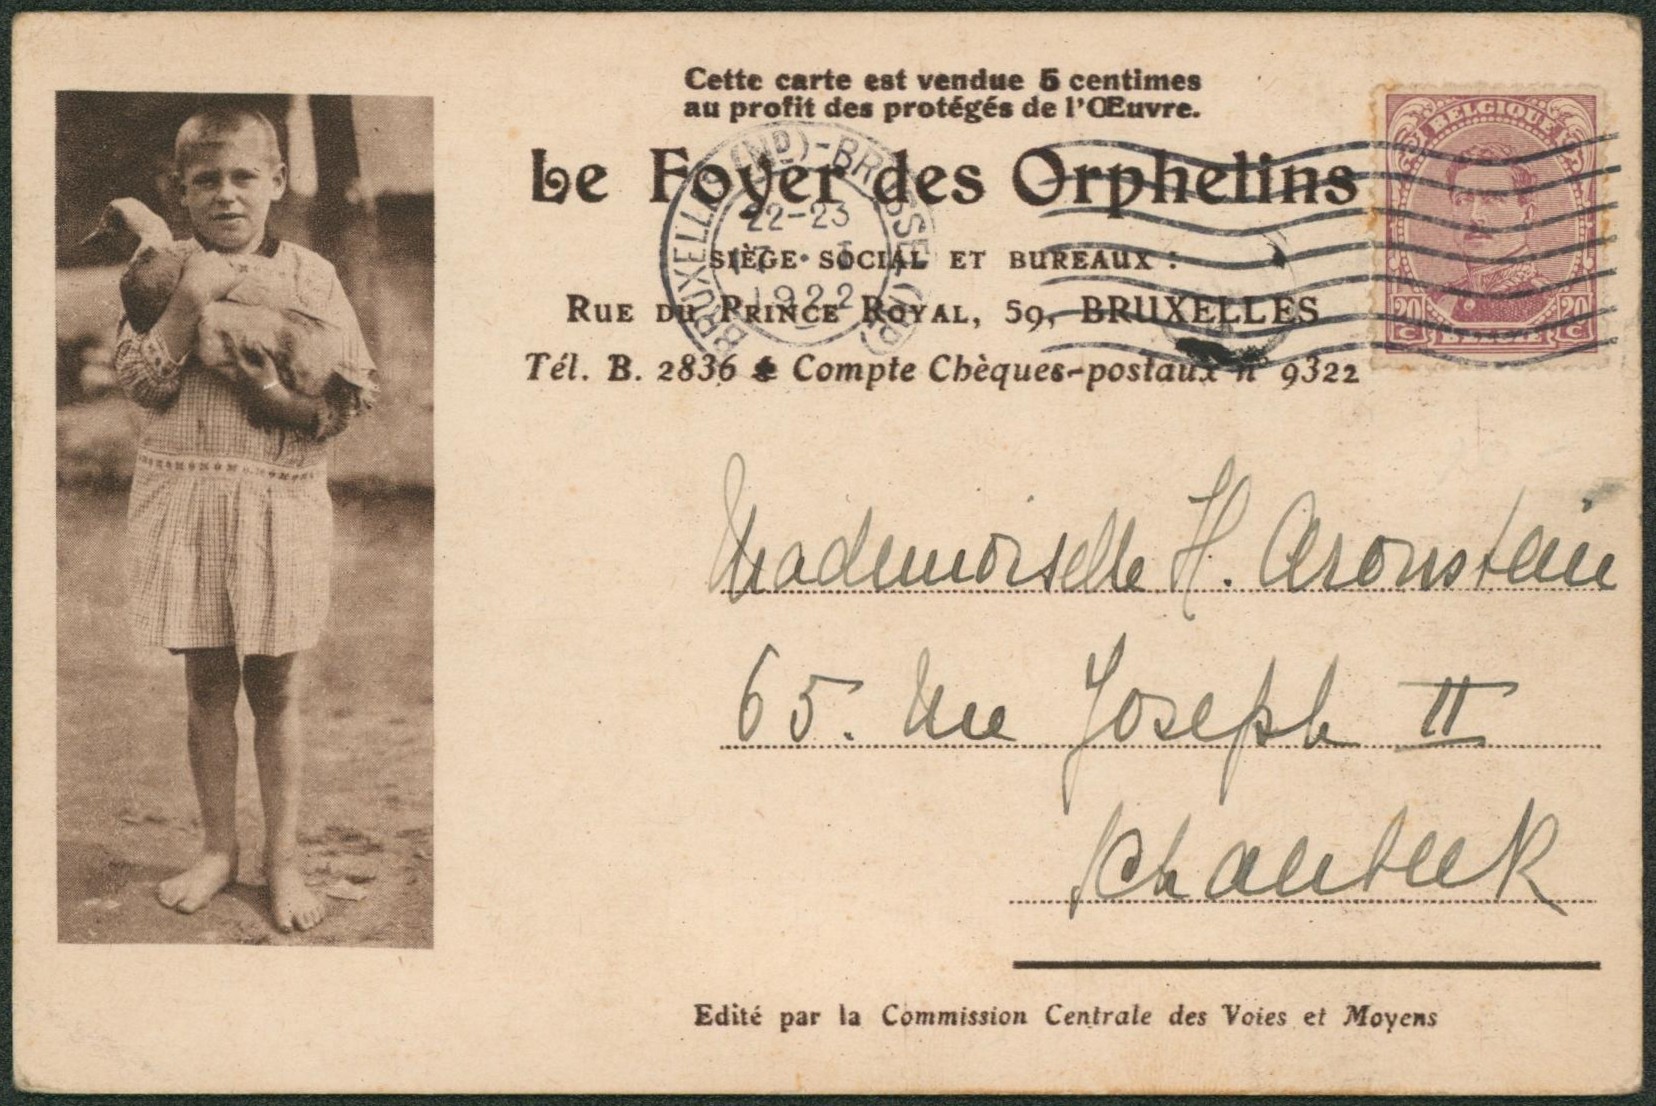 Cette carte est vendue 5 centimes
au profit des protégés de l'Œuvre.
Le Foyer des Orphelins
SIÈGE SOCIAL ET BUREAUX :
RUE DU PRINCE ROYAL, 59, BRUXELLES
Tél. B. 2836 Compte Chèques-postaux n° 9322
BRUXELLES (ND)-BRUSSEL
22-23
1922
BELGIQUE
20 C 20 C
BELGIE
Mademoiselle H. Aronstein
65. Rue Joseph II
Schaerbeek
Edité par la Commission Centrale des Voies et Moyens